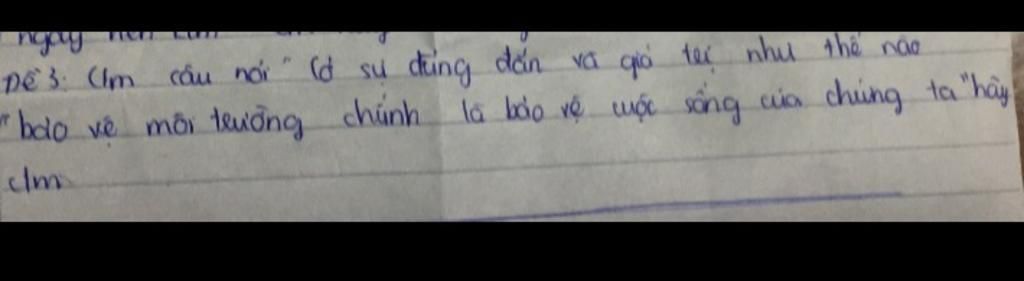 ngay nên
Đề 3: C/m câu nói " Có sự đúng đắn và giá trị như thế nào
"bảo vệ môi trường chính là bảo vệ cuộc sống của chúng ta" hãy
c/m